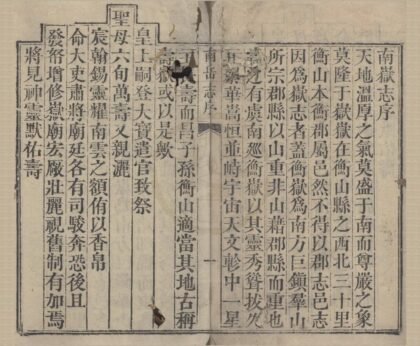 南嶽志序
天地溫厚之氣莫盛于南而尊嚴之象
莫隆于嶽嶽在衡山縣之西北三十里
衡山本衡郡屬邑然不得以郡志邑志
因為嶽志者蓋衡嶽為南方巨鎮羣山
所宗郡縣以山重非山藉郡縣而重也
之有虞南廵衡嶽以其靈秀聳拔
華嵩恒並峙宇宙天文軫中一星
壽而昌子孫衡山適當其地古稱
壽嶽或以是歟
南岳志序
一
皇上嗣登大寶遣官致祭
聖
母六旬萬壽又親灑
宸翰錫靈耀南雲之額侑以香帛
命大吏肅將廟廷各有司駿奔恐後且
發帑增修嶽廟宏厰壯麗視舊制有加焉
將見神靈默佑壽